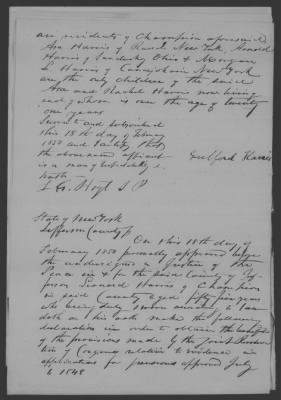 are residents of Champion aforesaid
Asa Harris of Rural New York, Leonard
Harris of Sandusky Ohio & Morgan
L. Harris of Canajoharie New York
are the only children of the said
Asa and Rachel Harris now living
and of whom is over the age of twenty
one years
Sworn to and subscribed
this 18th day of February
1850 and I certify that
the above named affiant
is a man of credibility &
truth
Guilford Harris
E G. Hoyt J P
State of New York
Jefferson County
On this 18th day of
February 1850 personally appeared before
the undersigned a Justice of the
Peace in & for the said County of Jef
ferson Leonard Harris of Champion
in said County aged fifty five years
who being duly sworn according to law
doth on his oath make the following
declaration in order to obtain the benefit
of the provisions made by the Joint Resolution
of Congress relative to evidence in
applications for pensions approved July
1848